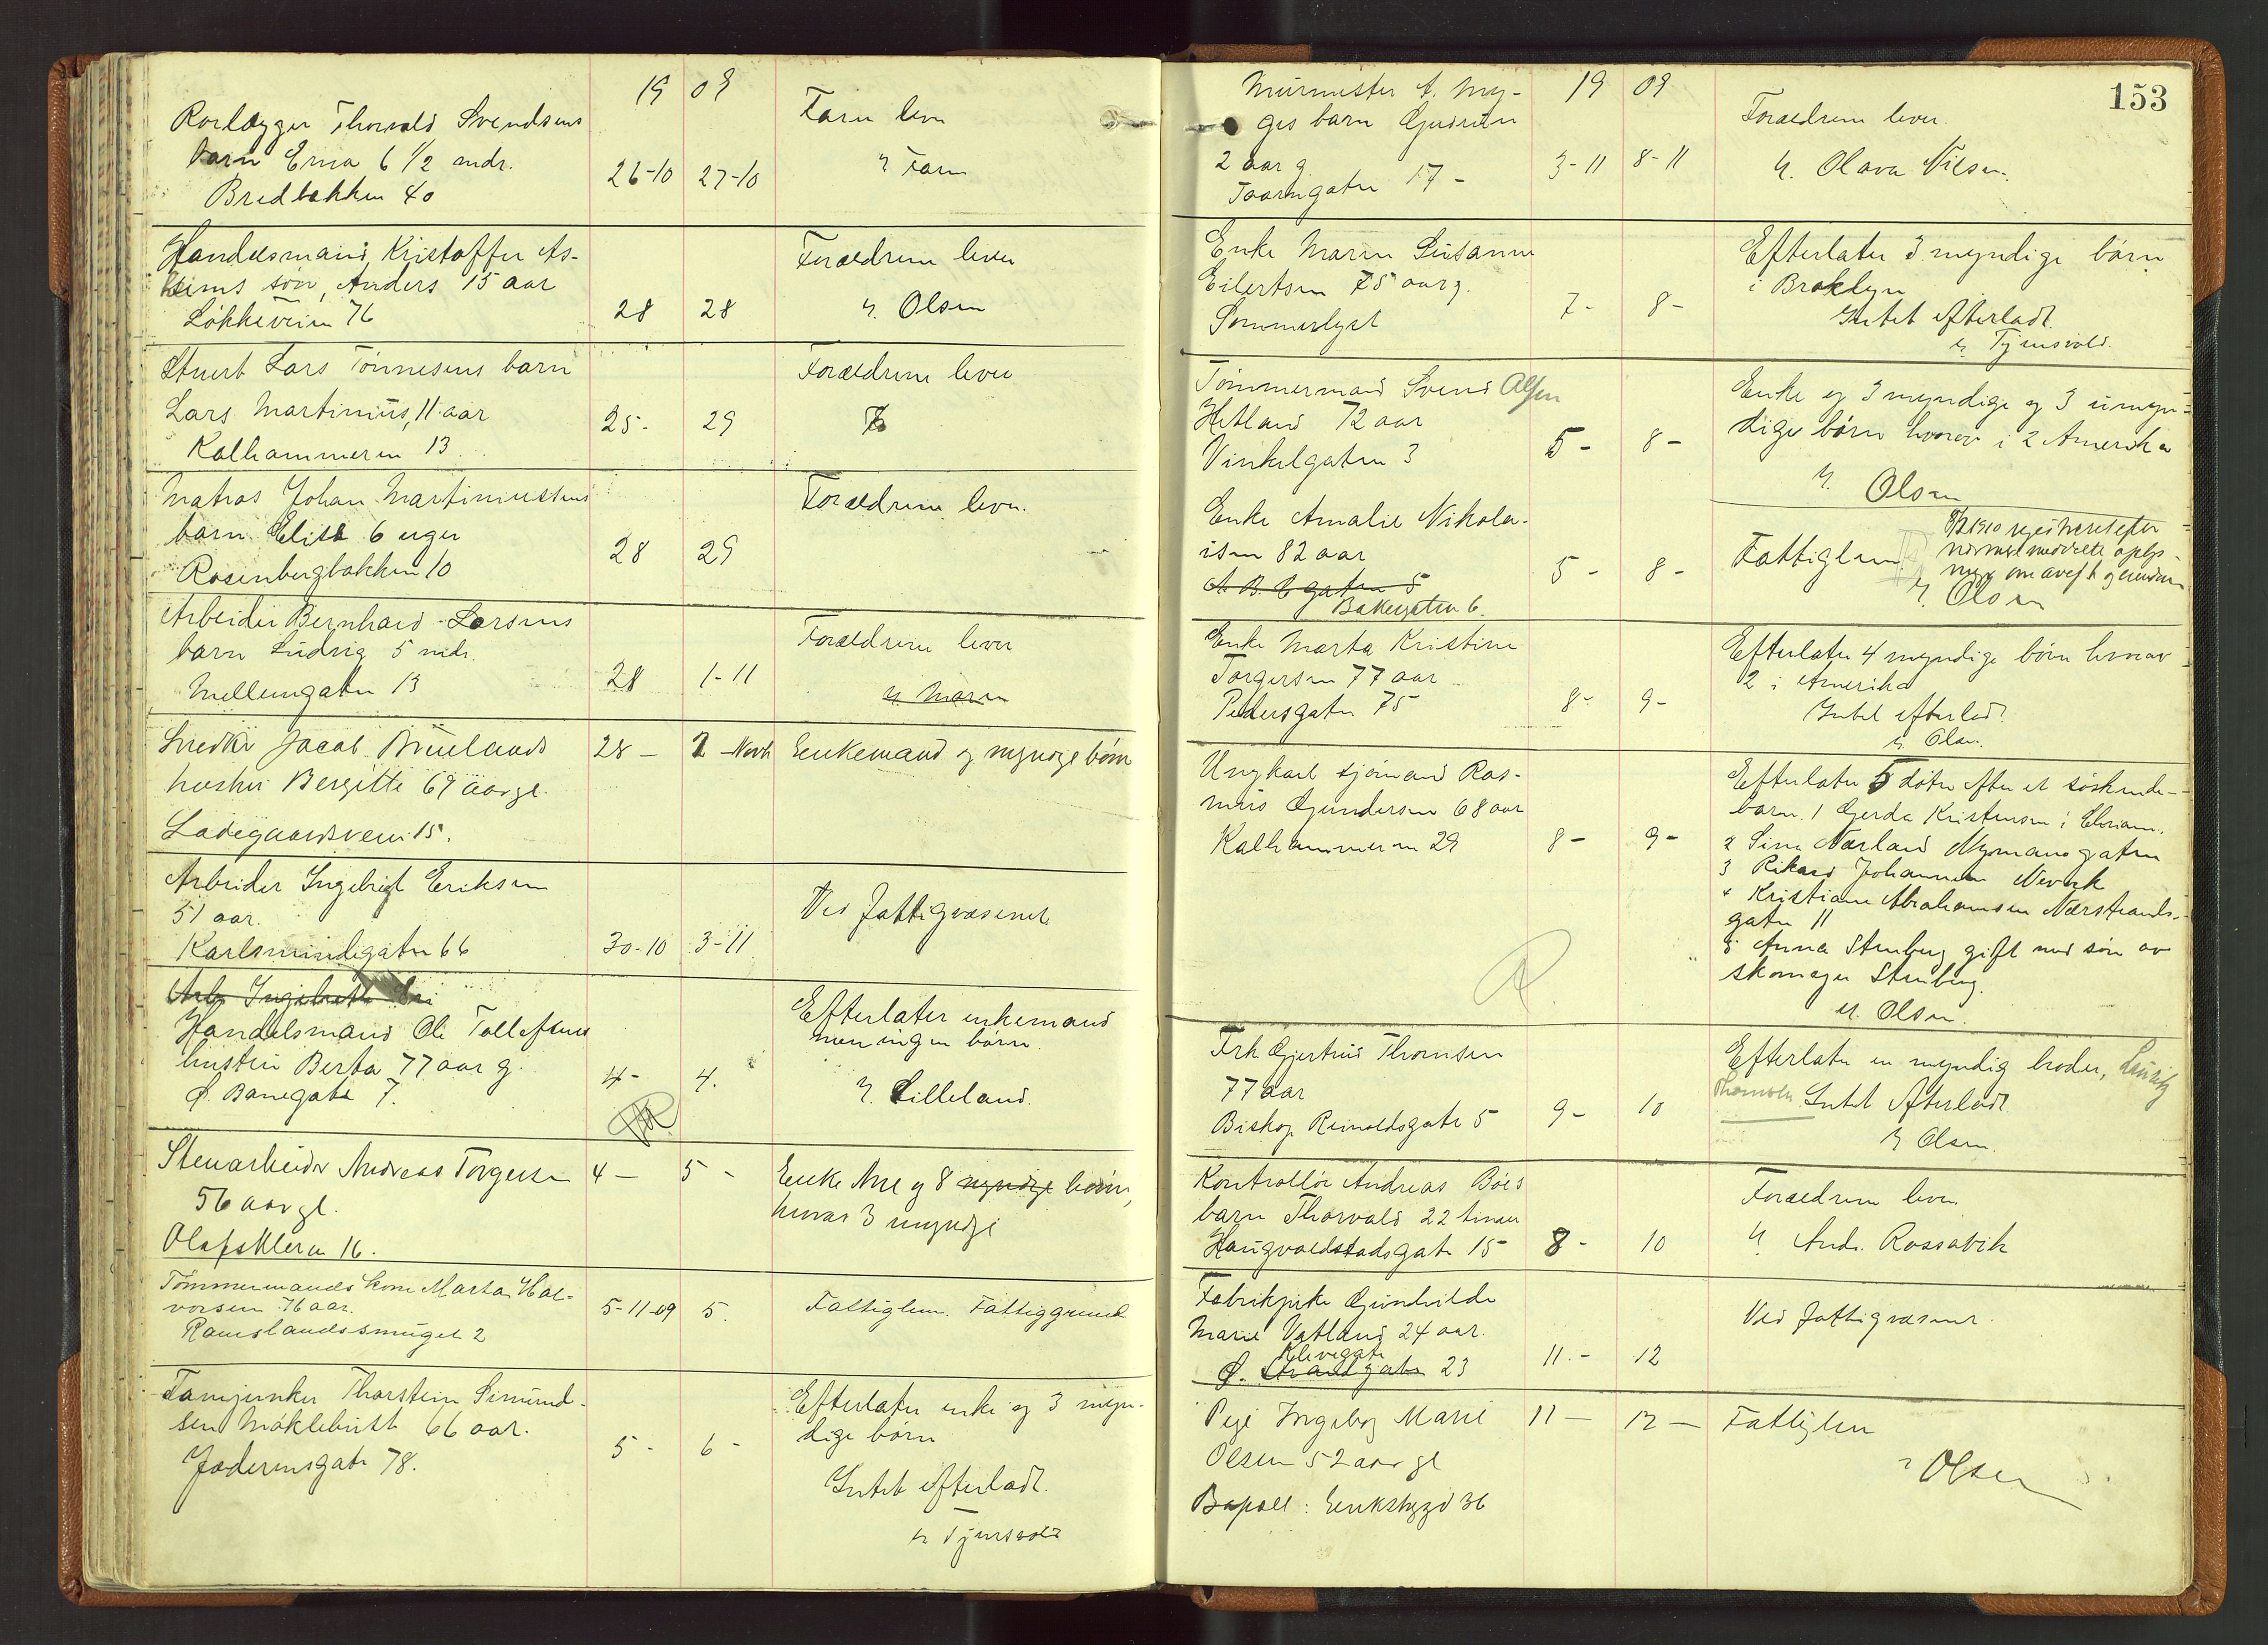 19 09
Rørlægger Thorvald Svendsens
barn Erna 6 1/2 mdr.
Bredbakken 40
26-10 27-10
Faren lever
v. Faren
Handelsmand Kristoffer As-
heims søn, Anders 15 aar
Løkkeveien 76
28 28
Forældrene lever
v. Olsen
Stuert Lars Tønnesens barn
Lars Martinius, 11 aar
Kalhammeren 13
25- 29
Forældrene lever
Matros Johan Martiniussens
barn Elise 6 uger
Rosenbergbakken 10
28 29
Forældrene lever.
Arbeider Bernhard Larsens
barn Ludvig 5 mdr.
Mellemgaten 13
28 1-11
Forældrene lever
v. Maren
Snedker Jacob Bruelands
hustru Bergitte 69 aar gl.
Ladegaardsveien 15.
28 - 2 - Novb
Enkemand og myndige børn
Arbeider Ingebrigt Eriksen
51 aar.
Karlsmindegaten 66
30-10 3-11
Ved Fattigvæsenet
Arb. Ingebrett Eri
Handelsmand Ole Tollefsens
hustru Berta 77 aar g.
Ø. Banegate 7.
4- 4.
Efterlater enkemand
men ingen børn.
v. Lilleland.
Stenarbeider Andreas Torgersen
56 aar gl.
Olafskleven 16.
4 - 5 -
Enke Ane og 8 myndige børn,
hvorav 3 myndige
Tømmermands kone Marta Hal-
vorsen 76 aar.
Ramslandssmuget 2
5-11-09 5.
Fattiglem. Fattiggrund
Fanejunker Thorstein Simund-
sen Møklebust 66 aar.
Jæderensgate 78.
5 - 6 -
Efterlater enke og 3 myn-
dige børn
Intet efterladt.
v. Tjensvold
153
19 09
Murmester A. Myg-
ges barn Gudrun
2 aar g.
Taarngaten 17 -
3-11 8-11
Forældrene lever.
v. Olava Nilsen.
Enke Maren Susanne
Eilertsen 75 aar g.
Sommerlyst
7- 8-
Efterlater 3 myndige børn
i Broklyn
Intet efterladt.
v. Tjensvold.
Tømmermand Svend Olsen
Hetland 72 aar
Vinkelgaten 3
5 - 8 -
Enke og 3 myndige og 3 umyn-
dige børn hvorav i 2 Amerika
v. Olsen
Enke Amalie Nikola-
isen 82 aar
A. B. C gaten 5
Bakergaten 6.
5 - 8 -
Fattiglem
v. Olsen
Enke Marta Kristine
Torgersen 77 aar
Pedersgaten 75
8- 9-
Efterlater 4 myndige børn hvorav
2 i Amerika
Intet efterladt.
v. Olsen.
Ungkarl sjømand Ras-
mus Gundersen 68 aar
Kalhammeren 29
8- 9-
Efterlater 5 døtre efter et søskende-
barn. 1 Gerda Kristensen i
2 Sina Nærland Nymansgaten
3 Rikard Johannesen
4 Kristiane Abrahamsen Nærstrands-
gaten 11
5 Anna Stenberg gift med søn av
skomager Stenberg.
v. Olsen.
Frk Gjertrud Thomsen
77 aar
Biskop Reinaldsgate 5
9- 10
Efterlater en myndig broder, Lauritz
Thomsen. Intet efterladt
v. Olsen.
Kontrollør Andreas Bøes
barn Thorvald 22 timer
Haugvaldstadsgate 15
8- 10
Forældrene lever.
v. Andr. Rossavik
Fabrikpike Gunhilde
Marie Vatland 24 aar.
Klevegate
Ø. Strandgate 23
11.- 12
Ved Fattigvæsenet.
Pige Ingeborg Marie
Olsen 52 aar gl
Bopæl: Enkebygd 36
11 - 12 -
Fattiglem
v Olsen